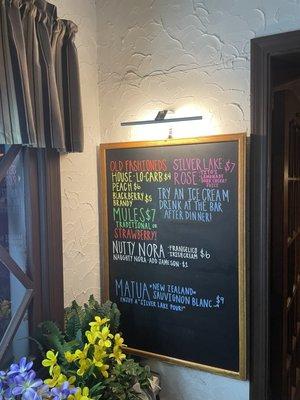 OLD FASHIONEDS
HOUSE·LO-CARB $4
PEACH $6
BLACKBERRY $5
BRANDY
MULES $7
TRADITIONAL OR
STRAWBERRY!
NUTTY NORA -FRANGELICO
·IRISH CREAM $6
NAUGHTY NORA-ADD JAMESON-$1
SILVER LAKE $7
ROSE
TITO'S
LEMONADE
TRY AN ICE CREAM
DRINK AT THE BAR
AFTER DINNER!
MATUA •NEW ZEALAND•
SAUVIGNON BLANC $9
ENJOY A "SILVER LAKE POUR!"